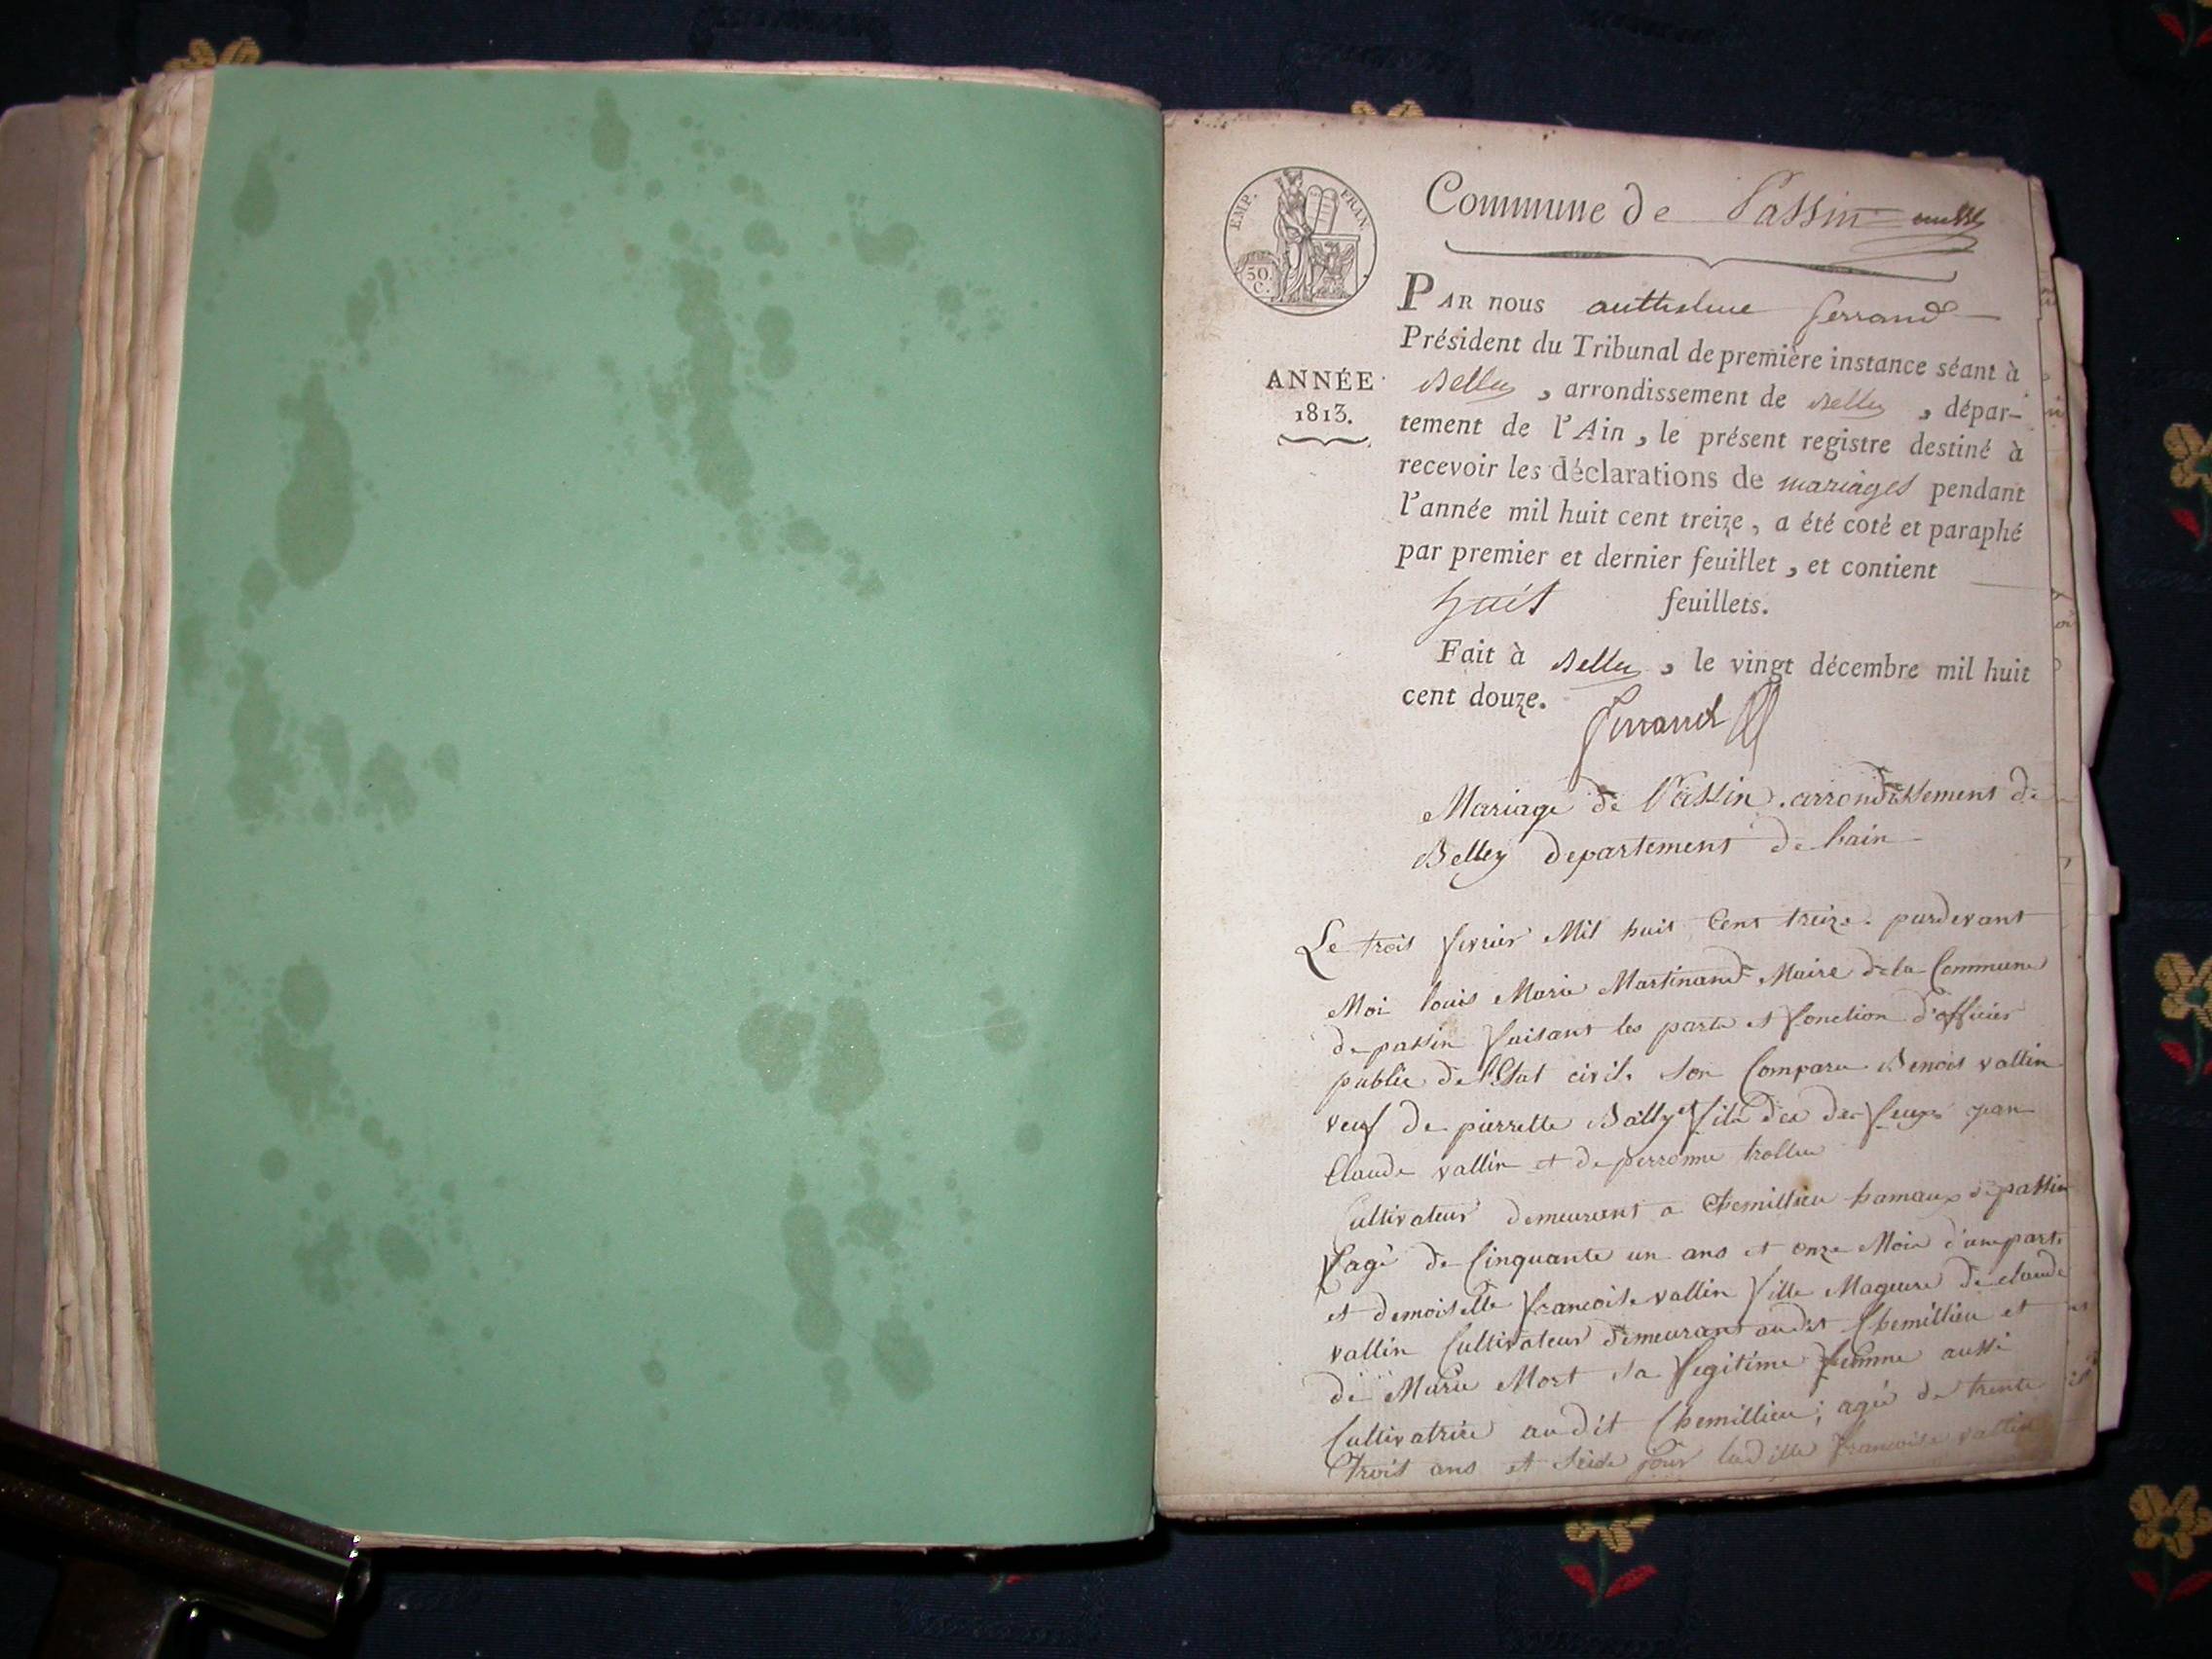 EMP. FRAN.
50.
C.
Commune de Passin
PAR nous anthelme ferrand
Président du Tribunal de première instance séant à
ANNÉE
1813.
Belley, arrondissement de Belley, dépar-
tement de l'Ain, le présent registre destiné à
recevoir les déclarations de mariages pendant
l'année mil huit cent treize, a été coté et paraphé
par premier et dernier feuillet, et contient
huit feuillets.
Fait à Belley, le vingt décembre mil huit
cent douze.
ferrand
Mariage de Passin. arrondissement de
Belley departement de lain
Le trois fevrier Mil huit Cent treize. pardevant
Moi louis Marie Martinand Maire dela Commune
de passin faisant les parts et fonction d'officier
public de l'Etat civil. son Comparu Benoit vallin
veuf de pierrette Bailly et fils des feux jean
Claude vallin et de perronne trollier
Cultivateur demeurant a Chemillieu hamaux de passin
agé de Cinquante un ans et onze Mois d'une part
et demoiselle francoise vallin fille Mageure de claude
vallin Cultivateur demeurant audit Chemillieu et
de Marie Mort sa legitime femme aussi
Cultivatrice audit Chemillieu; agée de trente
trois ans et seide jour ladille francoise vallin